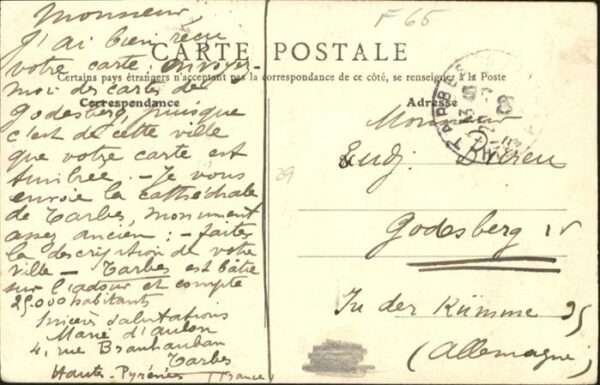 F 65
CARTE POSTALE
Certains pays étrangers n'acceptant pas la correspondance de ce côté, se renseigner à la Poste
Correspondance
Monsieur,
J'ai bien reçu
votre carte. Envoyez-
moi des cartes de
Godesberg, puisque
c'est de cette ville
que votre carte est
timbrée. - Je vous
envoie la cathédrale
de Tarbes, monument
assez ancien : - faites
la description de votre
ville - Tarbes est bâtie
sur l'adour et compte
25.000 habitants
Sincères salutations
Marie d'Aulon
4, rue Brauhauban
Tarbes
Hautes-Pyrénées (France)
Adresse
TARBES
29
Monsieur
Godesberg
In der Kümme 35
(Allemagne)